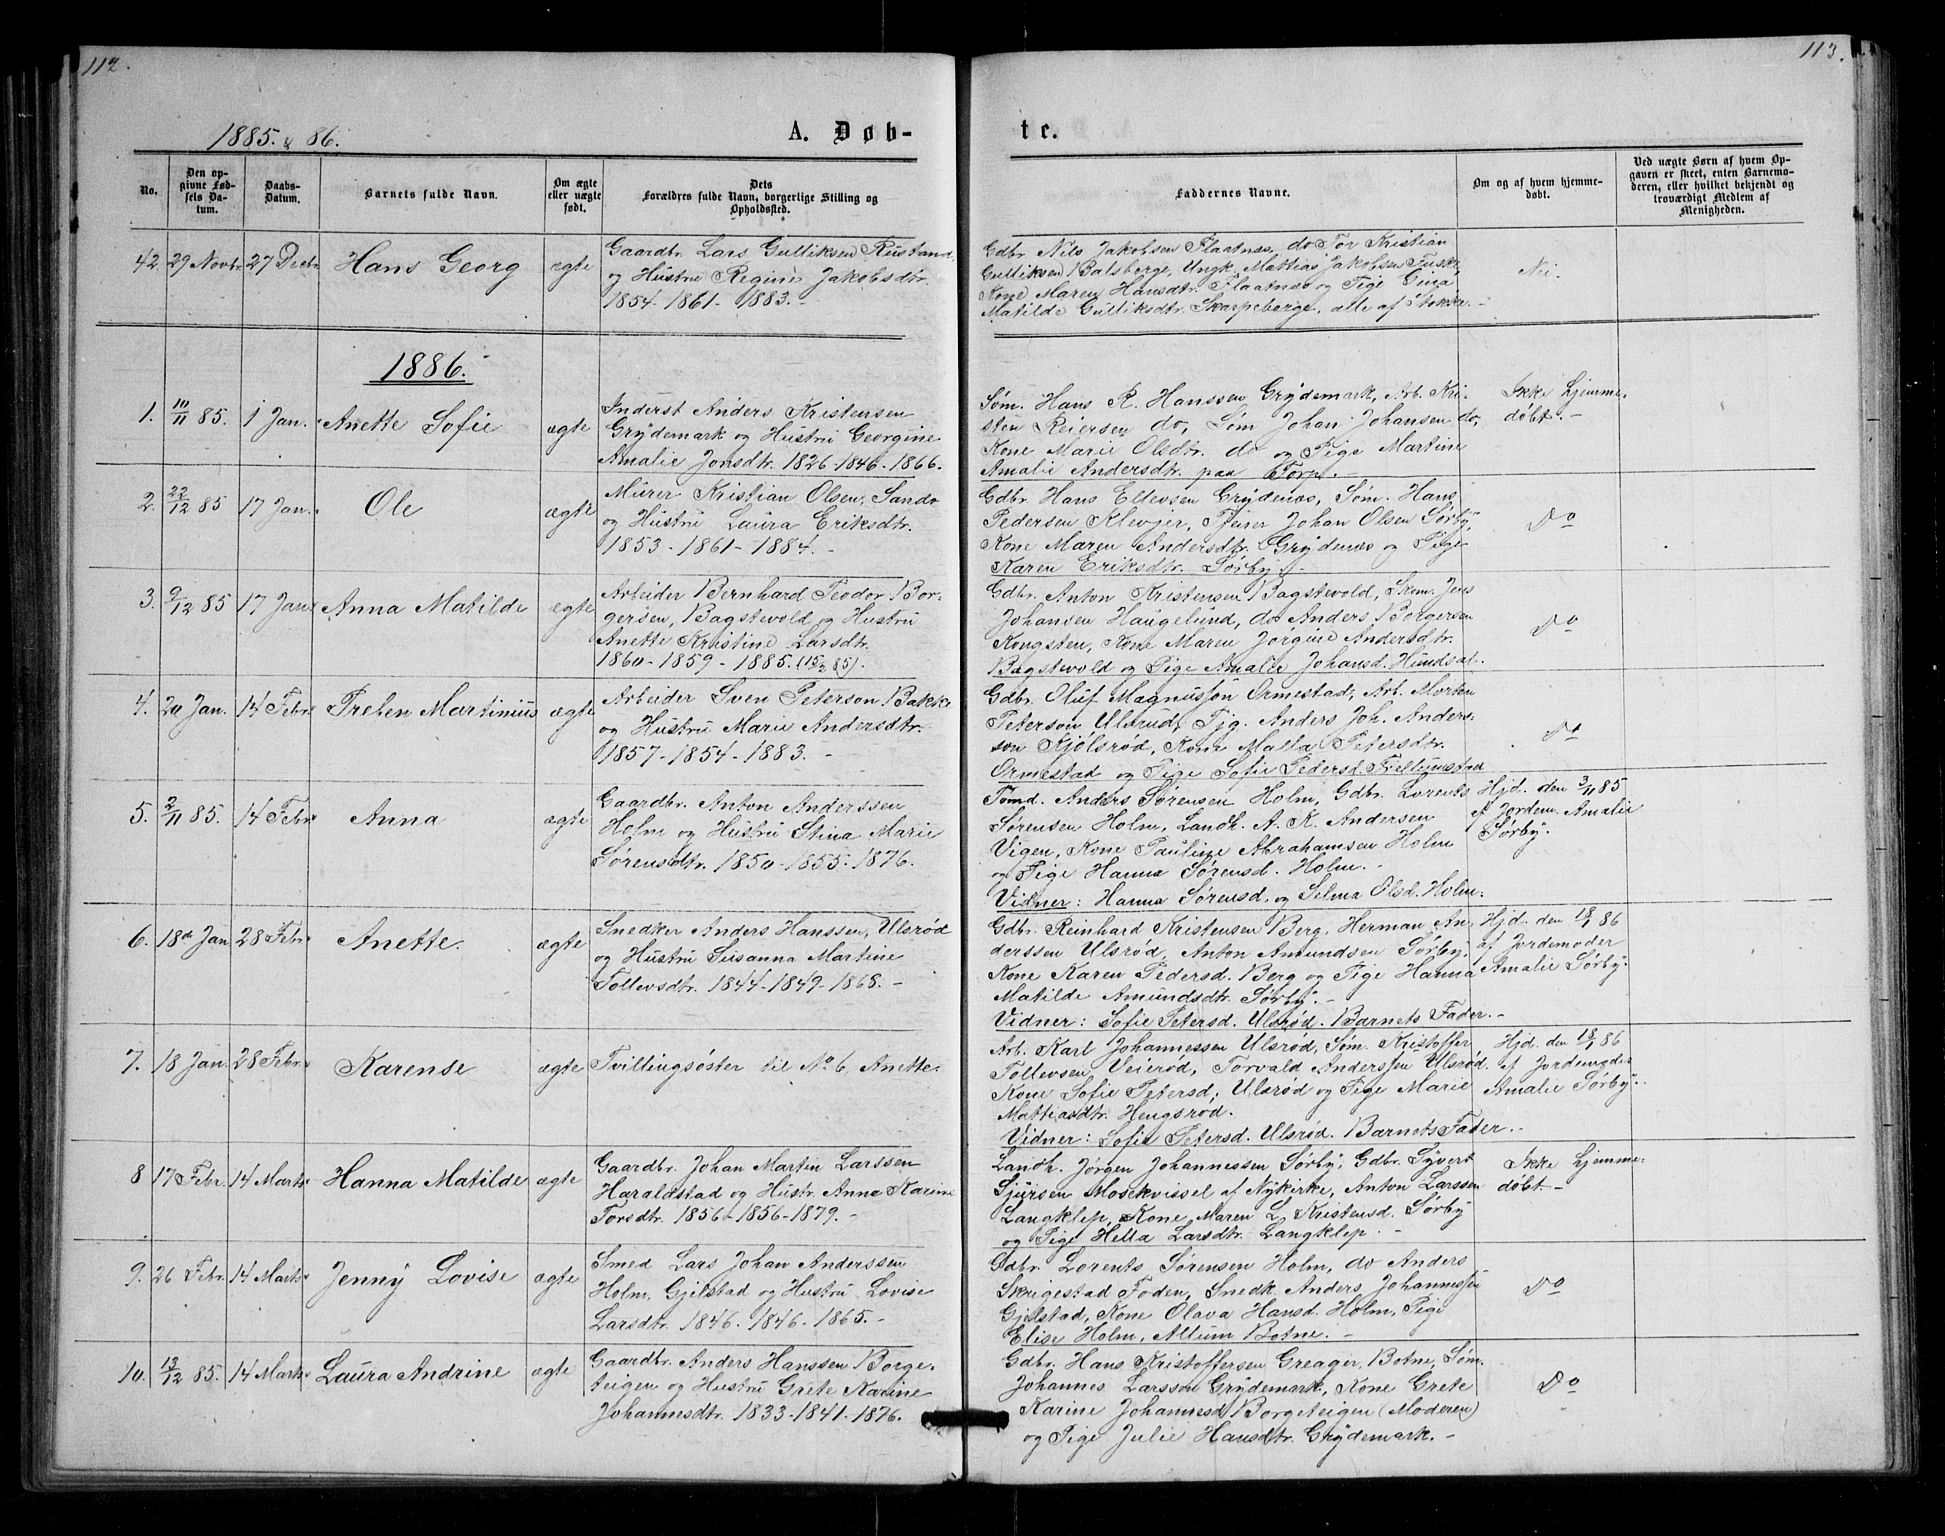 112.
113.
1885. & 86.
A. Døb-
te.
No.
Den op-
givne Fød-
sels Da-
tum.
Daabs-
Datum.
Barnets fulde Navn.
Om ægte
eller uægte
født.
Dets
Forældres fulde Navn, borgerlige Stilling og
Opholdssted.
Faddernes Navne.
Om og af hvem hjemme-
døbt.
Ved uægte Børn af hvem Op-
gaven er skeet, enten Barnemo-
deren, eller hvilket bekjendt og
troværdigt Medlem af
Menigheden.
42 29 Novbr. 27 Decbr. Hans Georg ægte
Gaardbr. Lars Gulliksen Rustand,
og Hustru Regine Jakobsdtr.
1854 - 1861 - 1883. -
Gdbr. Nils Jakobsen Flaatnes, do Tor Kristian
Gulliksen Balsberge, Ungk. Mattias Jakobsen
Kone Maren Hansdtr. Flaatnes og Pige Gina
Matilde Gulliksdtr. Skarpeborge, alle af Stokke. -
Nei.
1886.
1. 10/11 85. 1 Jan. Anette Sofie ægte
Inderst Anders Kristensen
Grydemark og Hustru Georgine
Amalie Jonsdtr. 1826 - 1846 - 1866.
Søm. Hans R. Hanssen Grydemark, Arb. Kri-
sten Reiersen do, Søm Johan Johansen do,
Kone Marie Olsdtr. do og Pige Martine
Amalie Andersdtr. paa Torp. -
Ikke hjemme-
døbt. -
2. 22/12 85 17 Jan. Ole ægte
Murer Kristian Olsen, Sando
og Hustru Laura Eriksdtr.
1853 - 1861 - 1884. -
Gdbr. Hans Ellevsen Grydenes, Søm. Hans
Pedersen Klevjer, Johan Olsen Sørby,
Kone Maren Andersdtr. Grydenes og Pige
Karen Eriksdtr. Sørby. -
Do
3. 9/12 85 17 Jan. Anna Matilde ægte
Arbeider Bernhard Teodor Bor-
gersen, Bagstevold og Hustru
Anette Kristine Larsdtr.
1860 - 1859 - 1885. (15/3 85).
Gdbr. Anton Kristensen Bagstevold, Skom. Jens
Johansen Haugelund, do Anders Borgersen
Kongsten, Kone Maren Jørgine Andersdtr.
Bagstevold og Pige Amalie Johansd. Hundsal.
Do
4. 20 Jan. 14 Febr. Preben Martinius ægte
Arbeider Sven Peterson Bakke
og Hustru Marie Andersdtr.
1857 - 1854 - 1883. -
Gdbr. Oluf Magnusson Ormestad, Arb. Morten
Peterson Ulsrud, Tjg. Anders Joh. Anders-
son Kjølsrød, Kone Malla Petersdtr.
Ormestad og Pige Sofie Pedersd.
Do
5. 2/11 85. 14 Febr. Anna ægte
Gaardbr. Anton Anderssen
Holm og Hustru Stina Marie
Sørensdtr. 1850 - 1855 - 1876.
Tømd. Anders Sørensen Holm, Gdbr. Lorents
Sørensen Holm, Landh. A. K. Andersen
Vigen, Kone Pauline Abrahamsen Holm
og Pige Hanna Sørensd. Holm. -
Vidner: Hanna Sørensd. og Selma Olsd. Holm.
Hjd. den 3/11 85
af Jordem. Amalie
Sørby.
6. 18de Jan 28 Febr. Anette. ægte
Snedker Anders Hanssen, Ulsrød
og Hustru Susanna Martine
Tollevsdtr. 1844 - 1849 - 1868. -
Gdbr. Reinhard Kristensen Berg, Herman An-
derssen Ulsrød, Anton Amundsen Sørby,
Kone Karen Pedersd. Berg og Pige Hanna
Matilde Amundsdtr. Sørby. -
Vidner: Sofie Petersd. Ulsrød. Barnets Fader. -
Hjd. den 18/1 86
af Jordemoder
Amalie Sørby.
7. 18 Jan. 28 Febr. Karense ægte
Tvillingsøster til No 6, Anette.
Arb. Karl Johannessen Ulsrød, Søm. Kristoffer
Tollevsen Veierød, Torvald Anderssen Ulsrød.
Kone Sofie Petersd, Ulsrød og Pige Marie
Mattiasdtr. Hengsrød.
Vidner: Sofie Petersd. Ulsrød. Barnets Fader. -
Hjd. den 18/1 86
af Jordemoder
Amalie Sørby.
8 17 Febr. 14 Marts Hanna Matilde ægte
Gaardbr. Johan Martin Larssen
Haraldstad og Hustr. Anne Karine
Torsdtr. 1856 - 1856 - 1879. -
Landh. Jørgen Johannessen Sørby, Gdbr. Syvert
Sjursen Mosekvissel af Nykirke, Anton Larssen
Langklep, Kone Maren L. Kristensd. Sørby
og Pige Hella Larsdtr. Langklep. -
Ikke hjemme-
døbt -
9. 26 Febr. 14 Marts Jenny Lovise ægte
Smed Lars Johan Anderssen
Holm, Gjelstad og Hustru Lovise
Larsdtr. 1846 - 1846 - 1865. -
Gdbr. Lorents Sørensen Holm, do Anders
Skrigestad Foden, Snedk. Anders Johannessen
Gjelstad, Kone Olava Hansd. Holm, Pige
Elise Holm, Allum Botne. -
Do
10. 13/12 85. 14 Marts Laura Andrine ægte
Gaardbr. Anders Hanssen Borge-
teigen og Hustru Grete Karine
Johannesdtr. 1833 - 1841 - 1876.
Gdbr. Hans Kristoffersen Greager, Botne, Søm.
Johannes Larssen Grydemark, Kone Grete
Karine Johannesd. Borgeteigen (Moderen)
og Pige Julie Hansdtr. Grydemark. -
Do